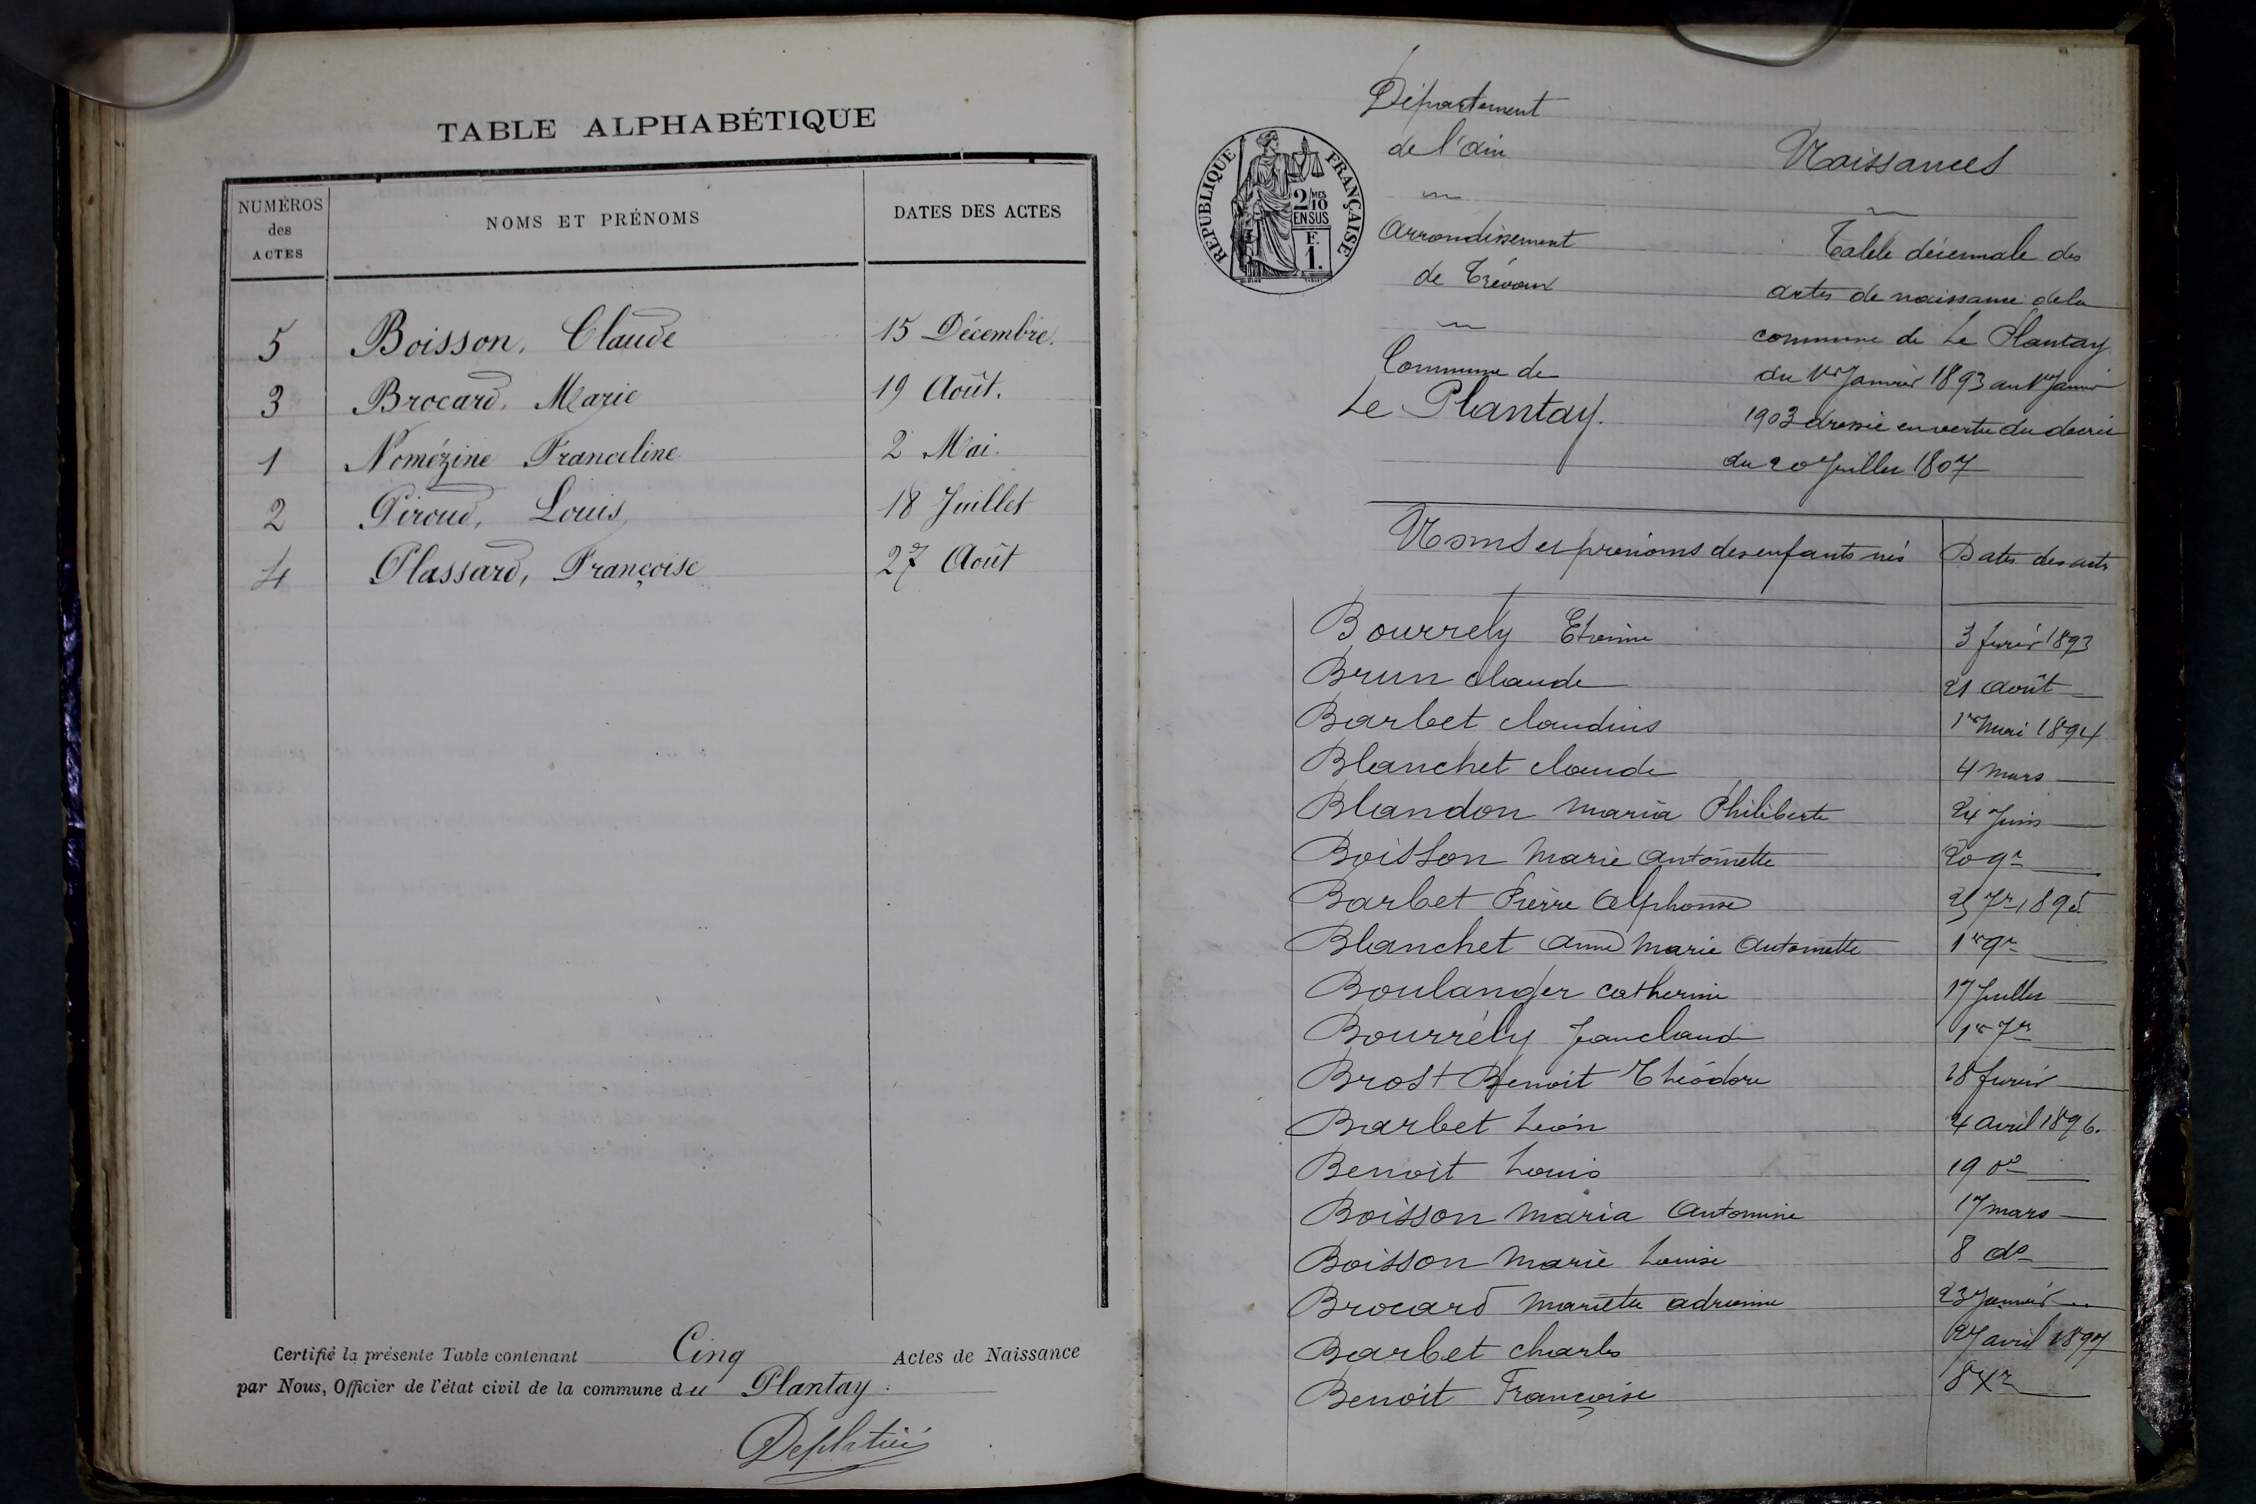 TABLE ALPHABÉTIQUE
NUMÉROS des ACTES
NOMS ET PRÉNOMS
DATES DES ACTES
5 Boisson, Claude 15 Décembre.
3 Brocard, Marie 19 Août.
1 Nomézine Franceline 2 Mai.
2 Piroud, Louis 18 Juillet
4 Plassard, Françoise 27 Août
Certifié la présente Table contenant Cinq Actes de Naissance
par Nous, Officier de l'état civil de la commune du Plantay.
Département
de l'Ain
Arrondissement
de Trévoux
Commune de
Le Plantay.
RÉPUBLIQUE FRANÇAISE
2/10 MES
EN SUS
F.
1.
Naissances
Table décennale des
actes de naissance de la
commune de Le Plantay
du 1er Janvier 1893 au 1er Janvier
1903 dressée en vertu du décret
du 20 Juillet 1807
Noms et prénoms des enfants nés Dates des actes
Bourrely Etienne 3 février 1893
Brun claude 21 août
Barbet claudius 1er mai 1894
Blanchet claude 4 mars
Blandon maria Philiberte 24 Juin
Boisson Marie antoinette 20 9re
Barbet Pierre Alphonse 25 7re 1895
Blanchet anne marie antoinette 1er 9re
Boulanger catherine 17 Juillet
Bourrély Jean claude 1er 7re
Brost Benoit Théodore 28 février
Barbet Léon 4 avril 1896.
Benoit Louis 19 do
Boisson maria antonine 17 mars
Boisson Marie Louise 8 do
Brocard mariette adrienne 23 Janvier
Barbet charles 27 avril 1897
Benoit Françoise 8 Xre